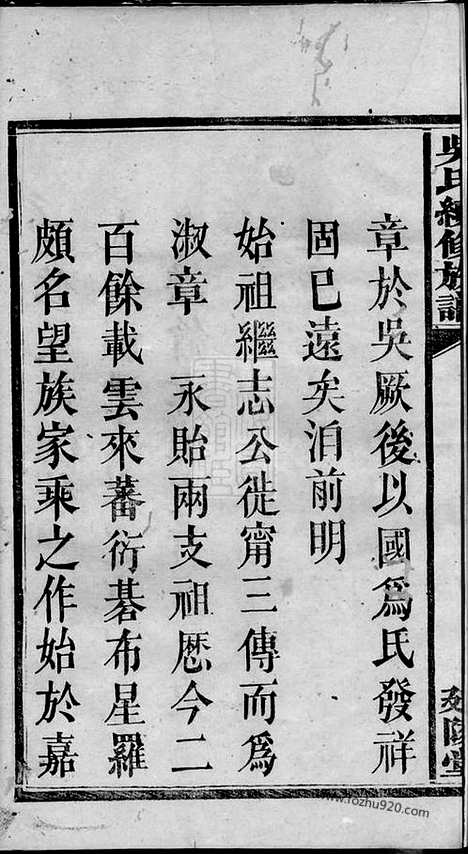 吳氏續修族譜
章於吳厥後以國爲氏發祥
固已遠矣洎前明
始祖繼志公徙甯三傳而爲
淑章　永貽兩支祖厯今二
百餘載雲來蕃衍碁布星羅
頗名望族家乘之作始於嘉
延陵堂
www.fozhu920.com